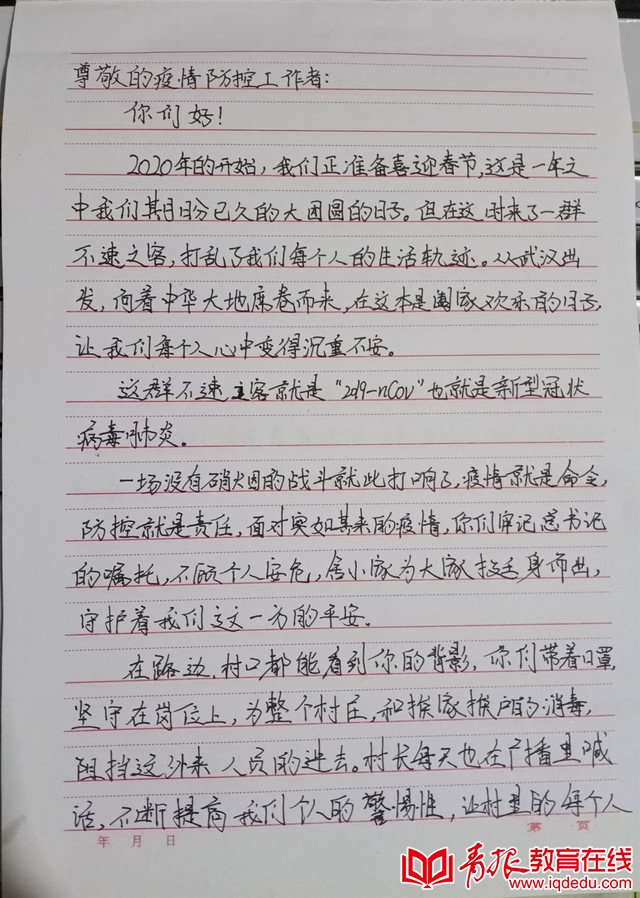 尊敬的疫情防控工作者：
你们好！
2020年的开始，我们正准备喜迎春节，这是一年之
中我们期盼已久的大团圆的日子。但在这时来了一群
不速之客，打乱了我们每个人的生活轨迹。从武汉出
发，向着中华大地席卷而来，在这本是阖家欢乐的日子，
让我们每个人心中变得沉重不安。
这群不速之客就是"2019-nCoV"也就是新型冠状
病毒肺炎。
一场没有硝烟的战斗就此打响了，疫情就是命令，
防控就是责任，面对突如其来的疫情，你们牢记总书记
的嘱托，不顾个人安危，舍小家为大家挺身而出，
守护着我们这一方的平安。
在路边，村口都能看到你的背影，你们带着口罩，
坚守在岗位上，为整个村庄，和挨家挨户的消毒，
阻挡这外来人员的进去。村长每天也在广播里喊
话，不断提高我们个人的警惕性，让村里的每个人
年 月 日
第 页
青报教育在线
www.iqdedu.com